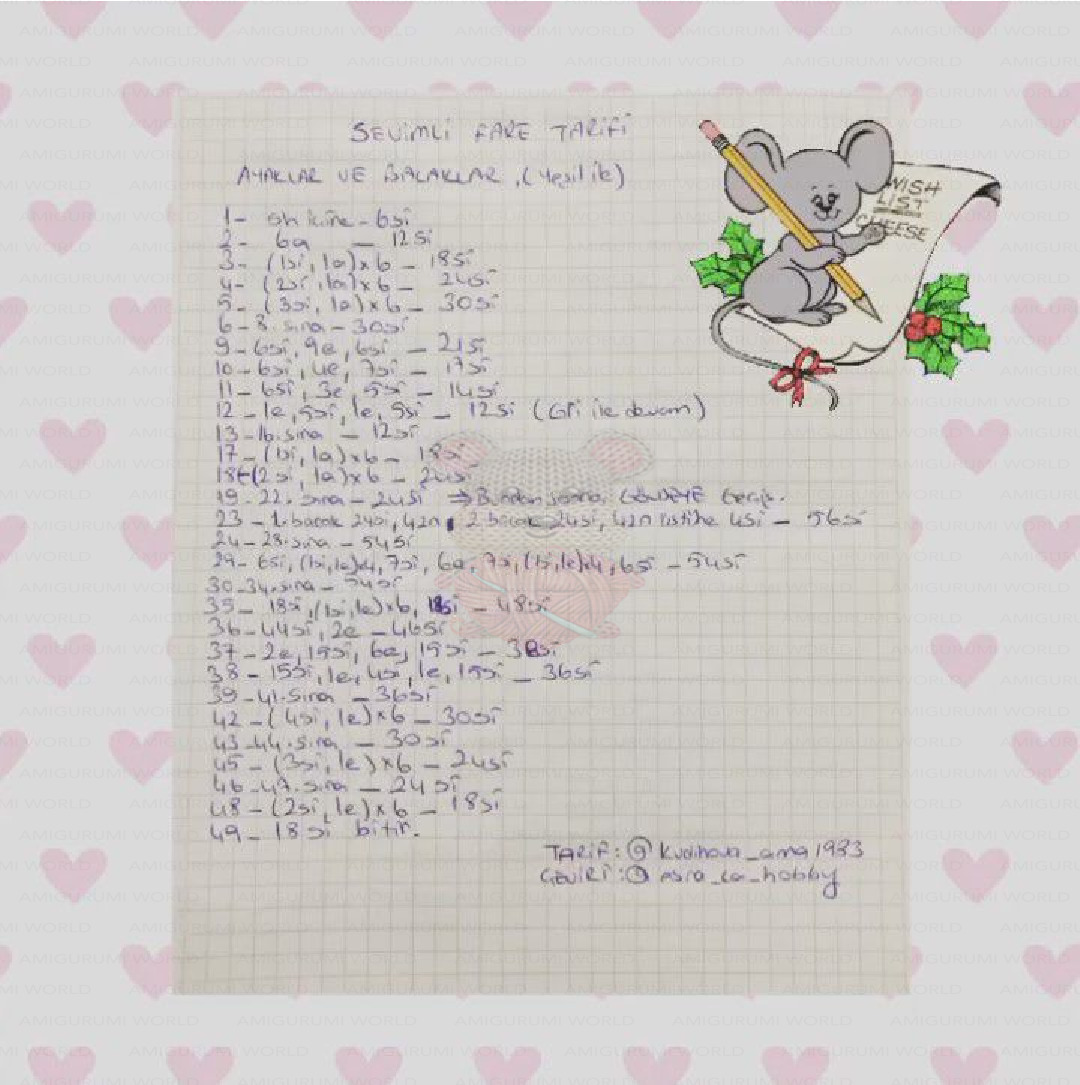 SEVİMLİ FARE TARİFİ
AYAKLAR VE BACAKLAR, (Yeşil ile)
1- sh içine - 6si
2- 6a — 12si
3- (1si, 1a)x6 - 18si
4- (2si, 1a)x6 - 24si
5- (3si, 1a)x6 - 30si
6-8. sıra - 30si
9- 6si, 9e, 6si - 21si
10- 6si, 4e, 7si - 17si
11- 6si, 3e, 5si - 14si
12- 1e, 5si, 1e, 5si - 12si (Gri ile devam)
13-16.sıra - 12si
17- (1si, 1a)x6 - 18si
18-(2si, 1a)x6 - 24si
19-22. sıra - 24si ⇒ Bundan sonra GÖVDEYE
23 - 1. bacak 24si, 4zn, 2 bacak 24si, 4zn üstüne 4si - 56si
24-28.sıra - 54si
29- 6si, (1si,1e)x4, 7si, 6a, 7si, (1si,1e)x4, 6si - 54si
30-34.sıra - 54si
35- 18si, (1si,1e)x6, 18si - 48si
36-44si, 2e - 46si
37- 2e, 15si, 6e, 15si - 38si
38- 15si, 1e, 4si, 1e, 15si - 36si
39-41.sıra - 36si
42-(4si, 1e)x6 - 30si
43-44.sıra - 30si
45-(3si, 1e)x6 - 24si
46-47.sıra - 24si
48-(2si, 1e)x6 - 18si
49- 18si bitir.
TARİF: @kudinova_anna1983
ÇEVİRİ: @esra_ca_hobby
WISH
LIST
CHEESE
AMIGURUMI WORLD